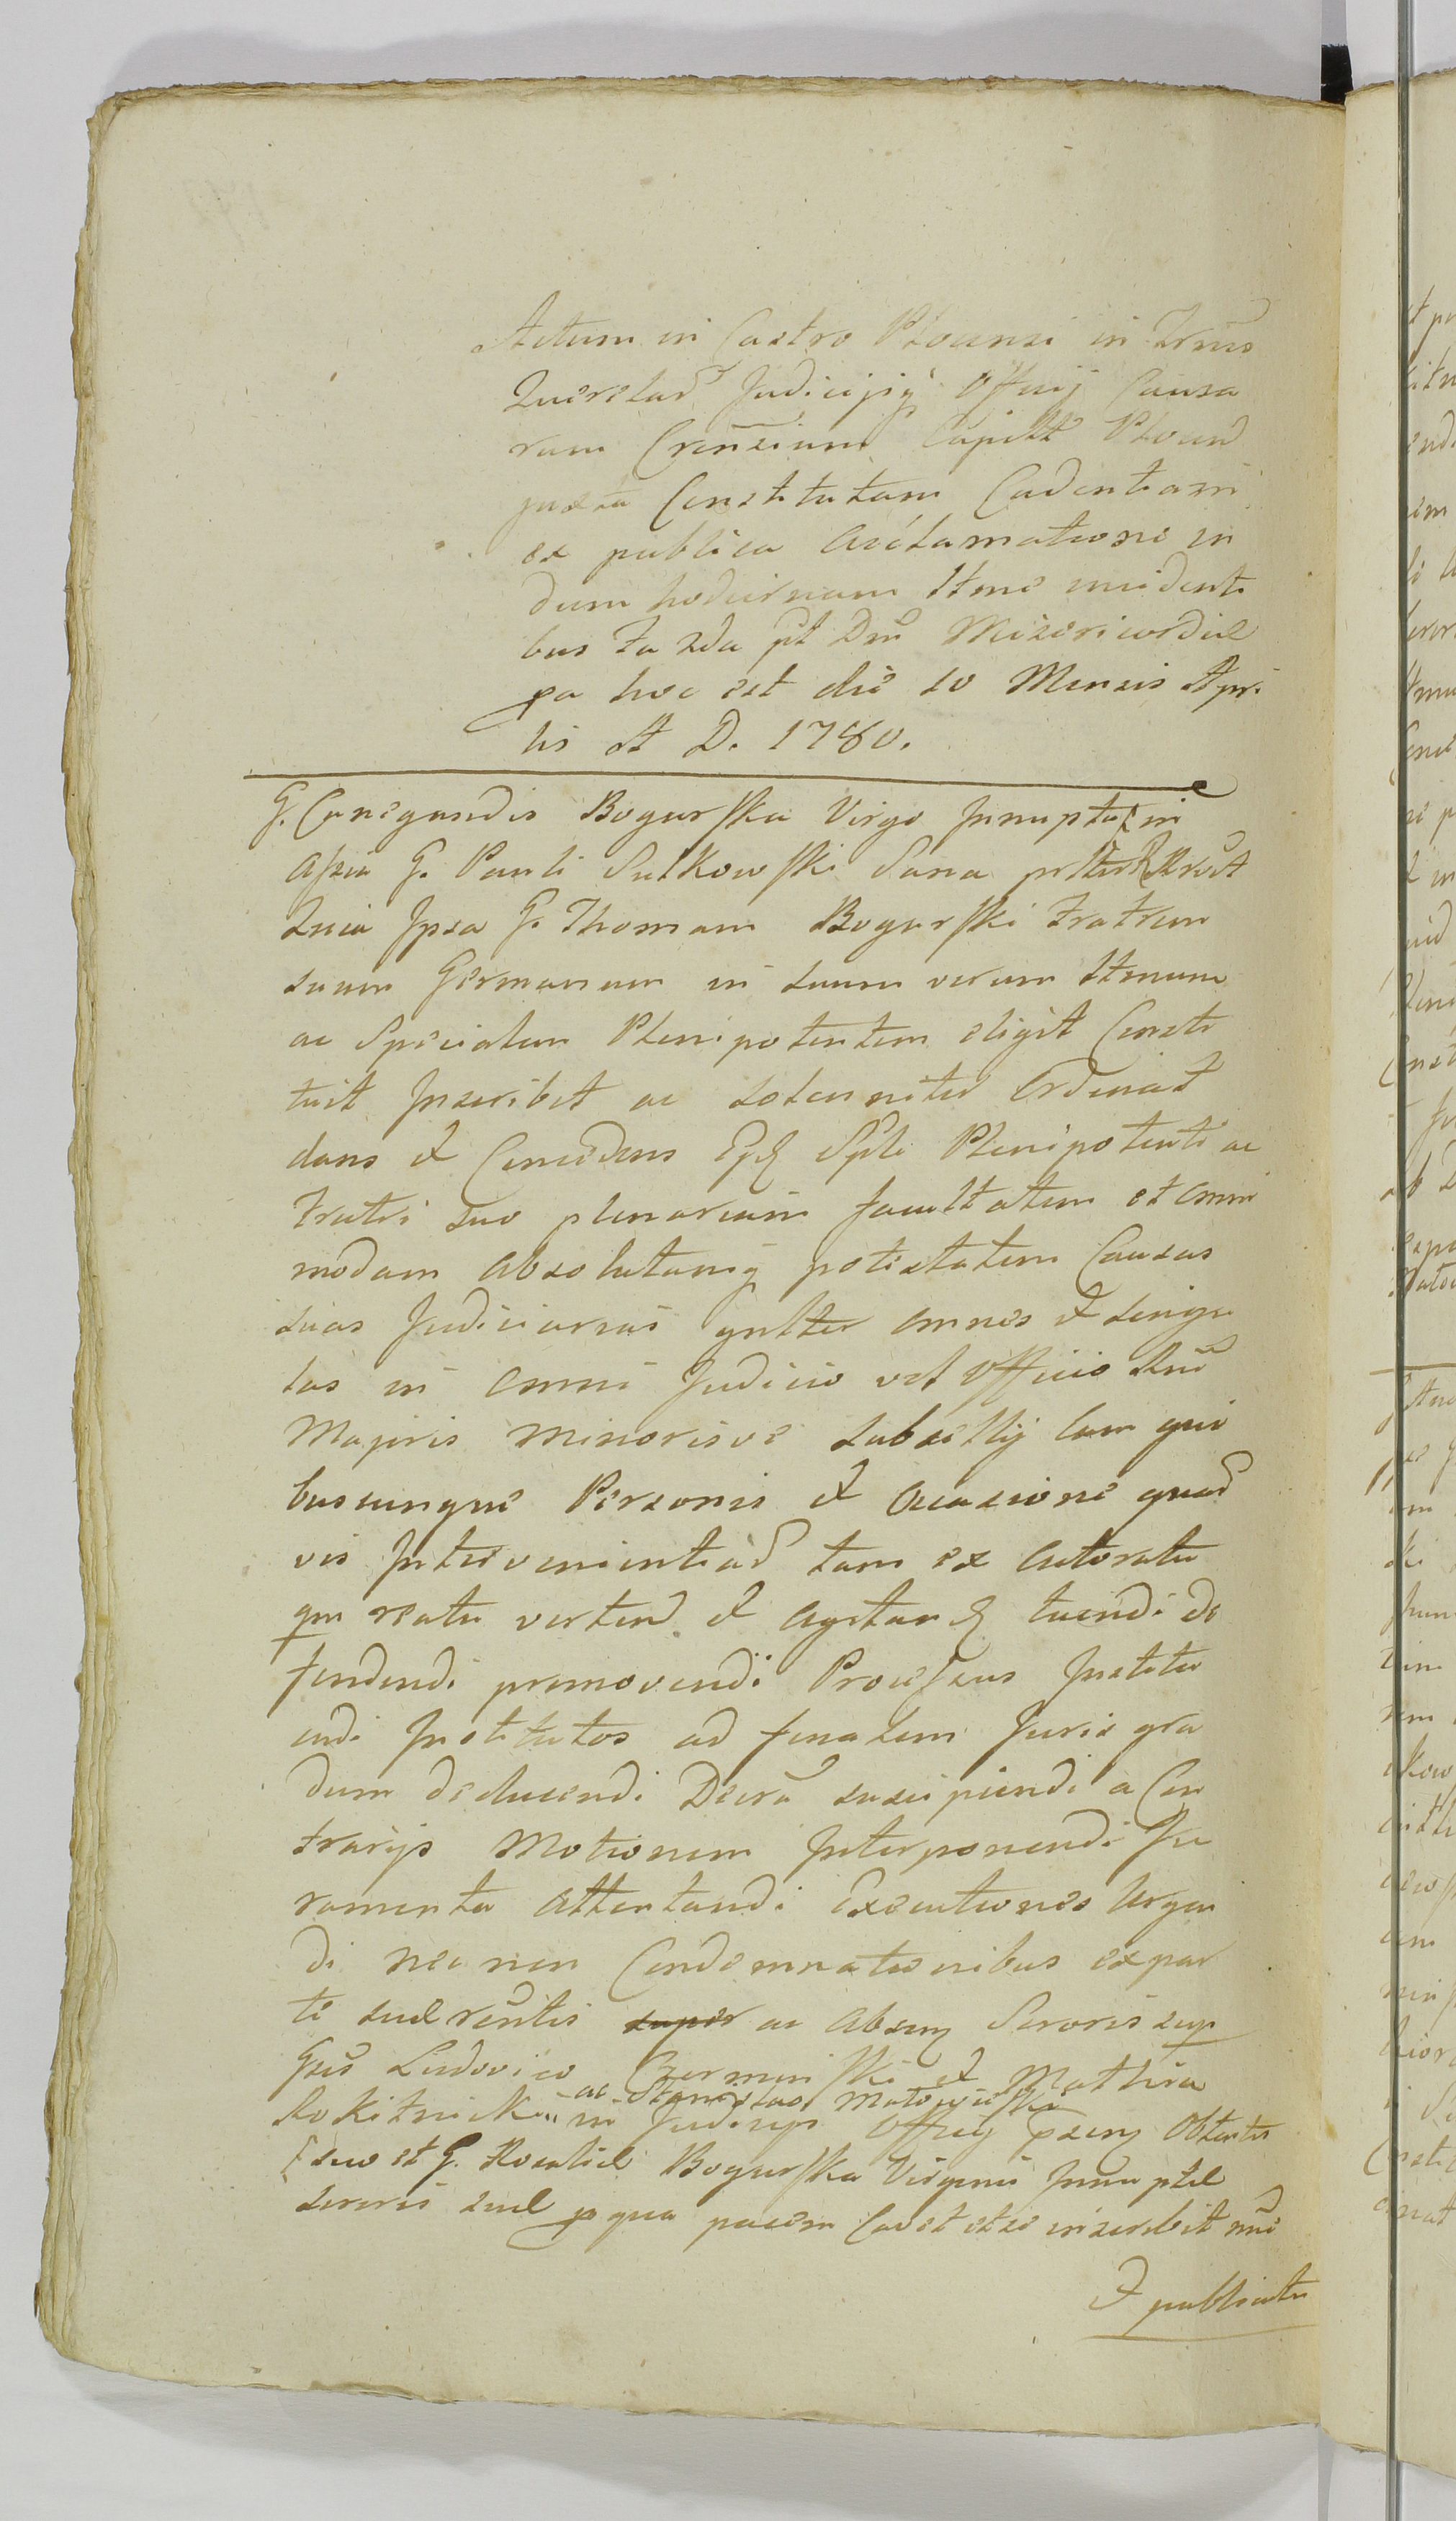 Actum in Castro Plocensi in Trmis
Querelar Judicijq Officij Causa
rum Crensium Capitt Plocen
juxta Constitutam Cadentiam
ex publica acclamatione in
diem hodiernam ltme incidenti
bus Fa 2da pt Dm Misericordiæ
pa hoc est die 10 Mensis Apri
lis A D. 1780.
G. Cunegundis Bogurska Virgo Innupta in
assia G. Pauli Sulkowski Sana
Quia Ipsa G. Thomam Bogurski Fratrem
suum Germanum in suum verum ltmum
ac Specialem Plenipotentem eligit Consti
tuit Inscribit ac solenniter Ordinat
dans et Concedens Spli Plenipotenti ac
Fratri suo plenariam facultatem et omni
modam absolutamq potestatem Causas
suas Judiciarias gnlter omnes et singu
las in omni Judicio vel Officio Rni
Majoris Minorisve subsellij Cum qui
buscunque Personis et Occasione quar
vis Intervenientiar tam ex actoratu
qm reatu verten et agitan tuendi de
fendendi promovendi Processus Institu
endi Institutos ad finalem Juris gra
dum deducendi Decra suscipiendi a Con
trarijs Motionem Interponendi Ju
ramenta attentandi Executiones Urgen
di nec non Condemnationibus ex par
te suæ rentis super ac absen Sororis sup
Gnis Ludovico Czerminski et Mathia
ac Stanislao
Rokitnicki in Judicijs Officij psenq Obtentis
suo et G. Rosaliæ Bogurska Virginis Innuptæ
sororis suæ p qua pacem Cavet et se inscribit mne
et publicatu